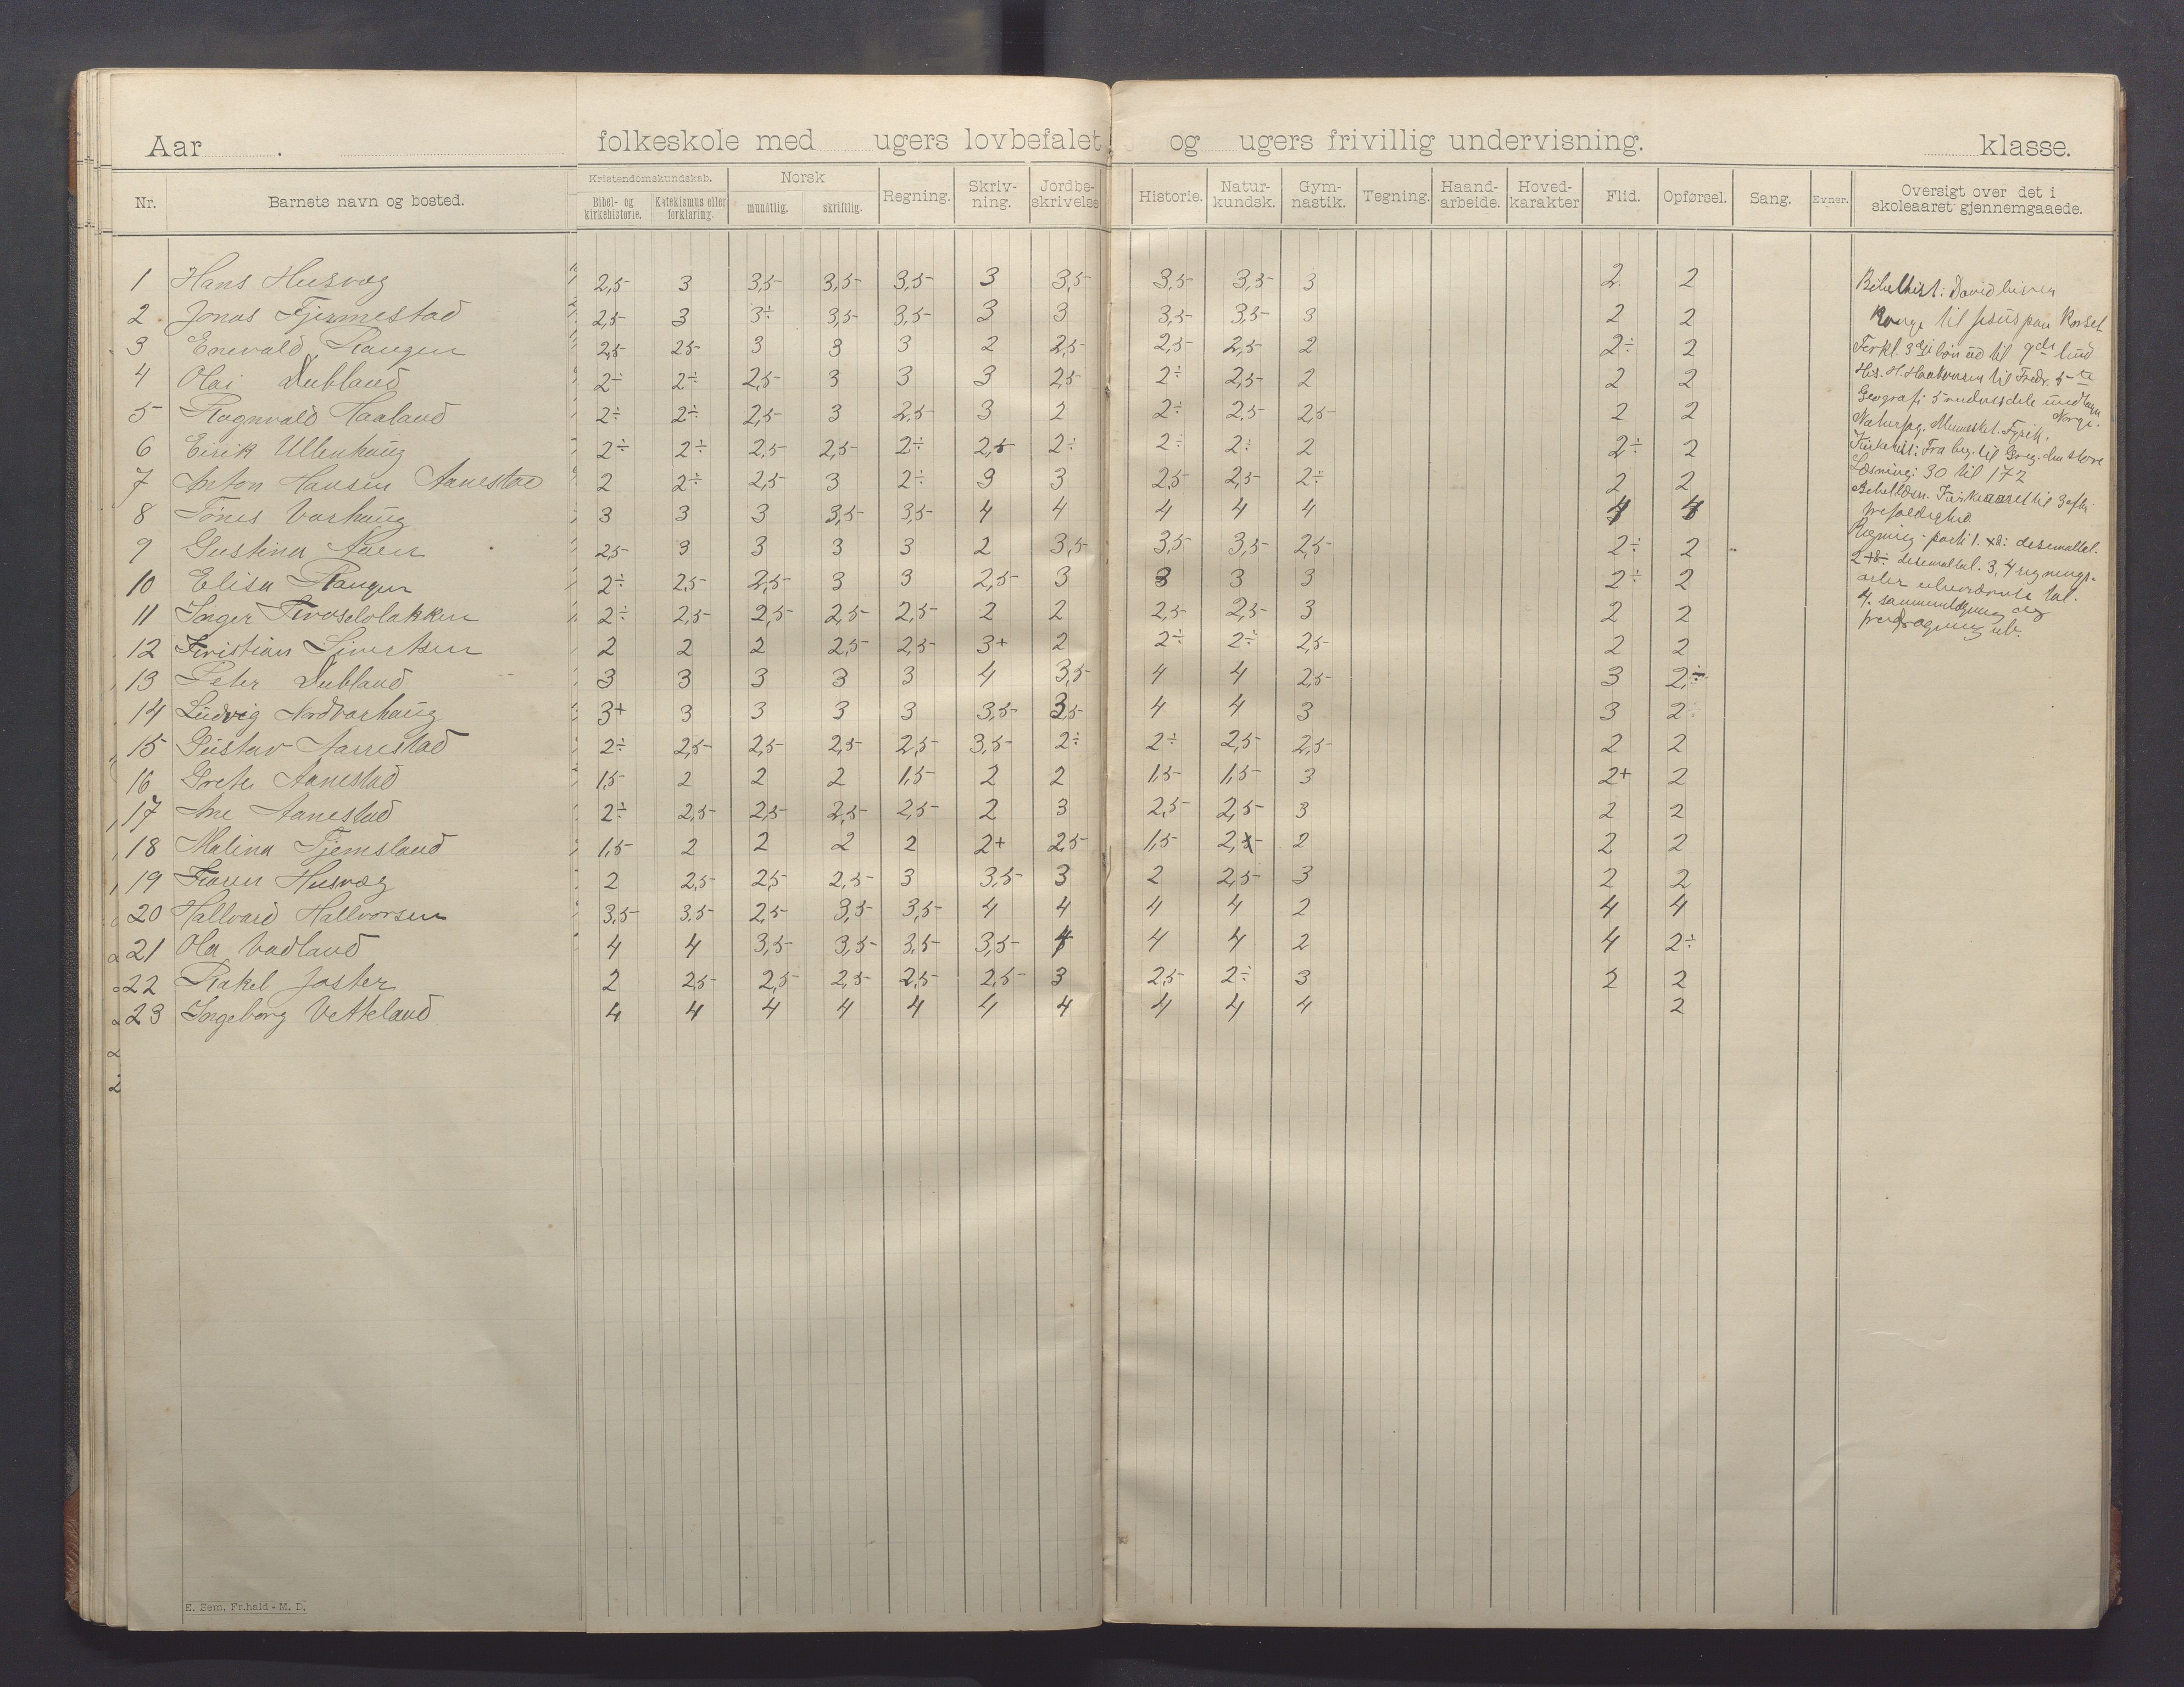 Aar . folkeskole med ugers lovbefalet og ugers frivillig undervisning. klasse.
Nr. Barnets navn og bosted. Kristendomskundskab. Bibel- og kirkehistorie. Katekismus eller forklaring. Norsk mundtlig. skriftlig. Regning. Skriv-ning. Jordbe-skrivelse Historie. Natur-kundsk. Gym-nastik. Tegning. Haand-arbeide. Hoved-karakter Flid. Opførsel. Sang. Evner. Oversigt over det i skoleaaret gjennemgaaede.
1 Hans Husvæg 2,5 3 3,5 3,5 3,5 3 3,5 3,5 3,5 3 2 2
2 Jonas Tjermestad 2,5 3 3÷ 3,5 3,5 3 3 3,5 3,5 3 2 2
3 Enevald Haugen 2,5 2,5 3 3 3 2 2,5 2,5 2,5 2 2÷ 2
4 Olai Dubland 2÷ 2÷ 2,5 3 3 3 2,5 2÷ 2,5 2 2 2
5 Ragnvald Haaland 2÷ 2÷ 2,5 3 2,5 3 2 2÷ 2,5 2,5 2 2
6 Eirik Ullenhaug 2÷ 2÷ 2,5 2,5 2÷ 2,5 2÷ 2÷ 2÷ 2 2÷ 2
7 Anton Hansen Aanestad 2 2÷ 2,5 3 2÷ 3 3 2,5 2,5 2÷ 2 2
8 Tönes Varhaug 3 3 3 3,5 3,5 4 4 4 4 4 4 4
9 Gustina 2,5 3 3 3 3 2 3,5 3,5 3,5 2,5 2÷ 2
10 Elisa Haugen 2÷ 2,5 2,5 3 3 2,5 3 3 3 3 2÷ 2
11 Inger 2÷ 2,5 2,5 2,5 2,5 2 2 2,5 2,5 3 2 2
12 Kristian Sivertsen 2 2 2 2,5 2,5 3+ 2 2÷ 2÷ 2,5 2 2
13 Peter Dubland 3 3 3 3 3 4 3,5 4 4 2,5 3 2,÷
14 Ludvig Nordvarhaug 3+ 3 3 3 3 3,5 3,5 4 4 3 3 2÷
15 Gustav Aarrestad 2÷ 2,5 2,5 2,5 2,5 3,5 2÷ 2÷ 2,5 2,5 2 2
16 Grete Aanestad 1,5 2 2 2 1,5 2 2 1,5 1,5 3 2+ 2
17 Ane Aanestad 2÷ 2,5 2,5 2,5 2,5 2 3 2,5 2,5 3 2 2
18 Malina Tjemsland 1,5 2 2 2 2 2+ 2,5 1,5 2 2 2
19 Karen Husvæg 2 2,5 2,5 2,5 3 3,5 3 2 2,5 3 2 2
20 Hallvard Hallvorsen 3,5 3,5 2,5 3,5 3,5 4 4 4 4 2 4 4
21 Ola Vadland 4 4 3,5 3,5 3,5 3,5 4 4 4 2 4 2÷
22 Rakel Joster 2 2,5 2,5 2,5 2,5 2,5 3 2,5 2÷ 3 2 2
23 Ingeborg Vetteland 4 4 4 4 4 4 4 4 4 4 2
Bibelhist: David bliver
Konge til Jesus paa Korset
Forkl. 3die bön ud til 9de bud
His. H. Haakonsen til Fredr. 5te
Geografi 5 verdensdele undtagen Norge.
Naturfag. Mennesket. Fysik.
Kirkehist: Fra beg. til Greg. den store
Læsning: 30 til 172
Bibellæsn. Kirkeaaret til 3 eft.
trefoldighed
Regning: parti 1. desemaltal.
2 desemaltal. 3, 4 regnings-
arter ubenævnte tal.
4. sammenlægning og
fradragning ub.
E. Sem, Fr.hald - M. D.